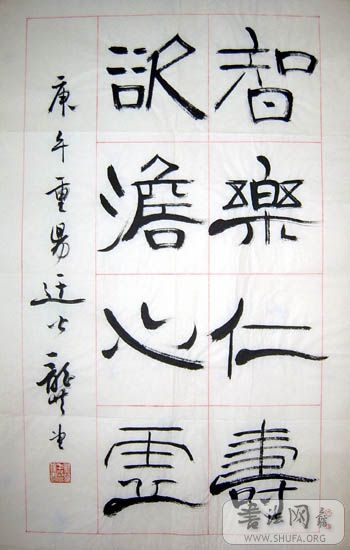 智樂仁壽
澹心
庚午重昜迂公龔望
書法网
WWW.SHUFA.ORG